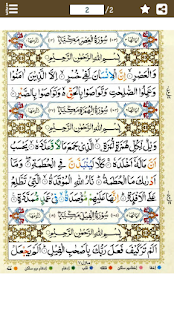 2 / 2
سُوْرَةُ الْعَصْرِ مَكِّيَّةٌ
بِسْمِ اللهِ الرَّحْمٰنِ الرَّحِيْمِ
وَالْعَصْرِ اِنَّ الْاِنْسَانَ لَفِيْ خُسْرٍ اِلَّا الَّذِيْنَ اٰمَنُوْا وَ
عَمِلُوا الصّٰلِحٰتِ وَتَوَاصَوْا بِالْحَقِّ وَتَوَاصَوْا بِالصَّبْرِ
سُوْرَةُ الْهُمَزَةِ مَكِّيَّةٌ
بِسْمِ اللهِ الرَّحْمٰنِ الرَّحِيْمِ
وَيْلٌ لِّكُلِّ هُمَزَةٍ لُّمَزَةٍ الَّذِيْ جَمَعَ مَالًا وَّعَدَّدَهٗ يَحْسَبُ
اَنَّ مَالَهٗٓ اَخْلَدَهٗ كَلَّا لَيُنْۢبَذَنَّ فِي الْحُطَمَةِ وَمَآ
اَدْرٰىكَ مَا الْحُطَمَةُ نَارُ اللهِ الْمُوْقَدَةُ الَّتِيْ تَطَّلِعُ
عَلَى الْاَفْـِٕدَةِ اِنَّهَا عَلَيْهِمْ مُّؤْصَدَةٌ فِيْ عَمَدٍ مُّمَدَّدَةٍ
سُوْرَةُ الْفِيْلِ مَكِّيَّةٌ
بِسْمِ اللهِ الرَّحْمٰنِ الرَّحِيْمِ
اَلَمْ تَرَ كَيْفَ فَعَلَ رَبُّكَ بِاَصْحٰبِ الْفِيْلِ اَلَمْ يَجْعَلْ